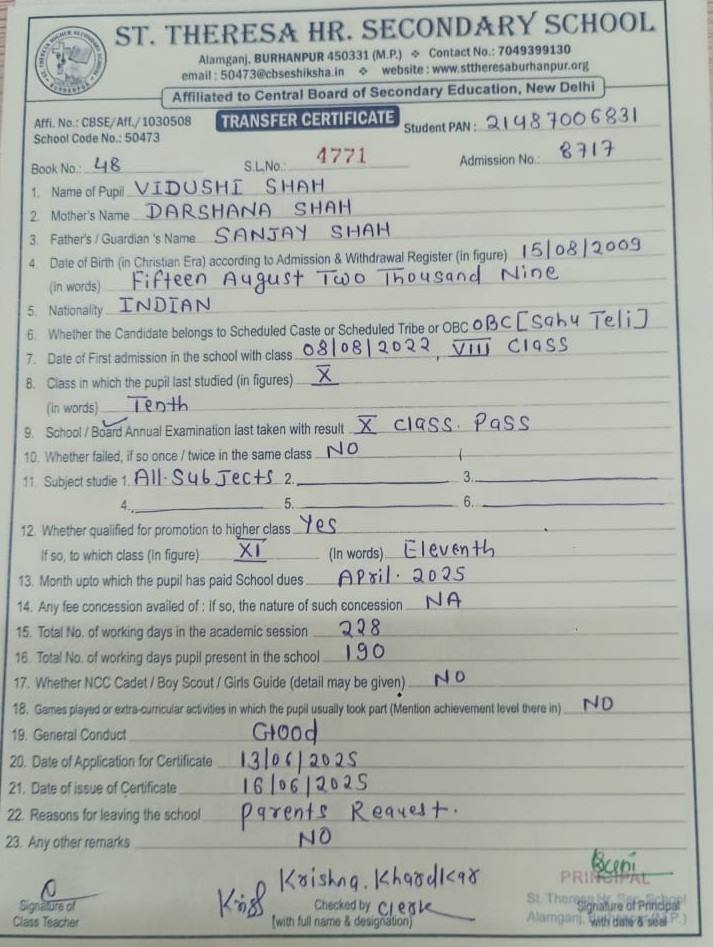 ST. THERESA HR. SECONDARY SCHOOL
Alamganj, BURHANPUR 450331 (M.P.) ❖ Contact No.: 7049399130
email : 50473@cbseshiksha.in ❖ website : www.sttheresaburhanpur.org
Affiliated to Central Board of Secondary Education, New Delhi
Affi. No.: CBSE/Aff./1030508 TRANSFER CERTIFICATE Student PAN : 21487006831
School Code No.: 50473
Book No.: 48 S.L.No.: 4771 Admission No.: 8717
1. Name of Pupil VIDUSHI SHAH
2. Mother's Name DARSHANA SHAH
3. Father's / Guardian 's Name SANJAY SHAH
4. Date of Birth (in Christian Era) according to Admission & Withdrawal Register (In figure) 15/08/2009
(in words) Fifteen August Two Thousand Nine
5. Nationality INDIAN
6. Whether the Candidate belongs to Scheduled Caste or Scheduled Tribe or OBC OBC [Sahu Teli]
7. Date of First admission in the school with class 08/08/2022, VIII Class
8. Class in which the pupil last studied (in figures) X
(in words) Tenth
9. School / Board Annual Examination last taken with result X Class. Pass
10. Whether failed, if so once / twice in the same class NO
11. Subject studie 1. All-Subjects 2. 3.
4. 5. 6.
12. Whether qualified for promotion to higher class Yes
If so, to which class (In figure) XI (In words) Eleventh
13. Month upto which the pupil has paid School dues April. 2025
14. Any fee concession availed of : If so, the nature of such concession NA
15. Total No. of working days in the academic session 228
16. Total No. of working days pupil present in the school 190
17. Whether NCC Cadet / Boy Scout / Girls Guide (detail may be given) NO
18. Games played or extra-curricular activities in which the pupil usually took part (Mention achievement level there in) NO
19. General Conduct Good
20. Date of Application for Certificate 13/06/2025
21. Date of issue of Certificate 16/06/2025
22. Reasons for leaving the school Parents Request.
23. Any other remarks NO
Krishna. Khardkar
PRINCIPAL
Signature of Checked by Clerk Signature of Principal
Class Teacher (with full name & designation) with date & seal